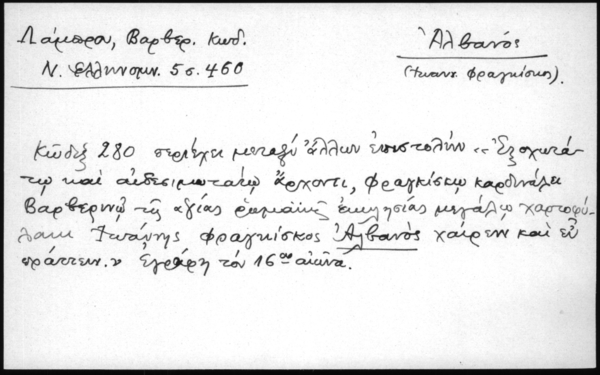 Λάμπρου, Βαρβερ. Κωδ.
Ν. Ἑλληνομν. 5 σ. 460
Ἀλβανός
(Ἰωανν. Φραγκίσκος).
Κῶδιξ 280 περιέχει μεταξὺ ἄλλων ἐπιστολὴν «Ἐξοχωτά-
τῳ καὶ αἰδεσιμωτάτῳ ἄρχοντι, Φραγκίσκῳ καρδινάλει
Βαρβερινῷ τῆς ἁγίας ῥωμαϊκῆς ἐκκλησίας μεγάλῳ χαρτοφύ-
λακι Ἰωάννης Φραγκίσκος Ἀλβανὸς χαίρειν καὶ εὖ
πράττειν.» Ἐγράφη τὸν 16ον αἰῶνα.